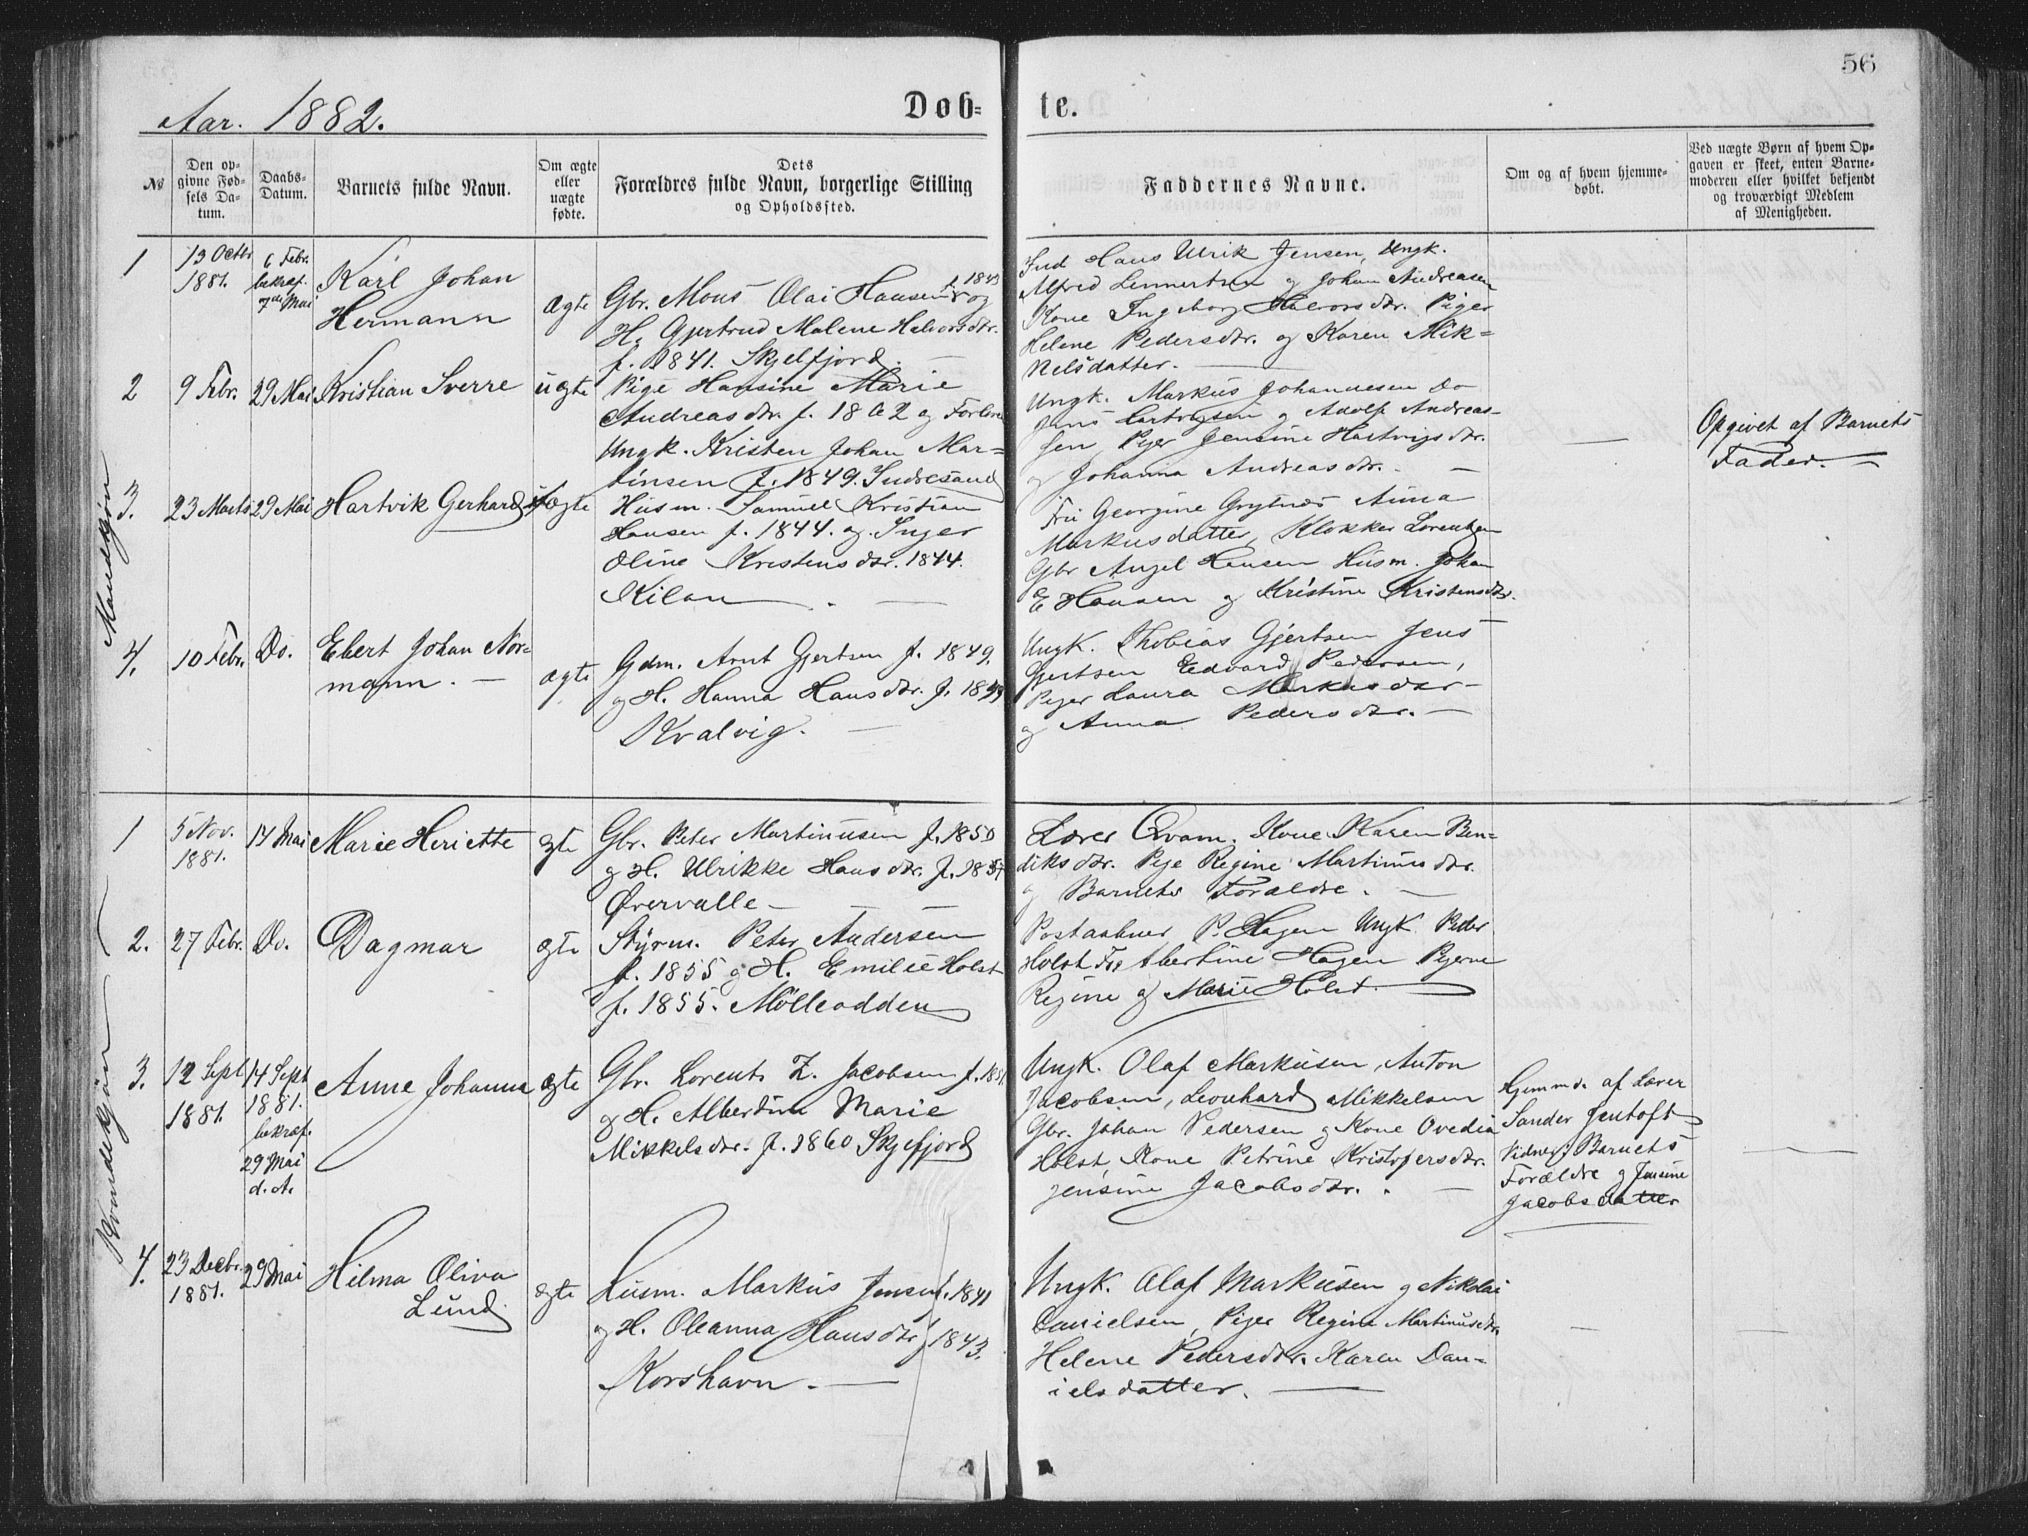 56
Aar. 1882.
Døb-
te.
№
Den op-
givne Fød-
sels Da-
tum.
Daabs-
Datum.
Barnets fulde Navn.
Om ægte
eller
uægte
fødte.
Dets
Forældres fulde Navn, borgerlige Stilling
og Opholdssted.
Faddernes Navne.
Om og af hvem hjemme-
døbt.
Ved uægte Børn af hvem Op-
gaven er skeet, enten Barne-
moderen eller hvilket bekjendt
og troværdigt Medlem
af Menigheden.
Mandkjøn
1
13 Octbr
1881.
6 Febr.
bekræf.
7de Mai
Karl Johan
Hermann
ægte
Gbr. Mons Olai Hansen f. 1843 og
H. Gjertrud Malene Halvorsdtr.
f. 1841. Skjelfjord.
Ind Hans Ulrik Jensen, Ungk.
Alfred Lennertsen og Johan Andreasen
Kone Ingeborg Halvorsdtr. Piger
Helene Pedersdtr. og Karen Mik-
kelsdatter.
2
9 Febr.
29 Mai
Kristian Sverre
uægte
Pige Hansine Marie
Andreasdtr. f. 1862 og Forlov
Ungk. Kristen Johan Mar-
tinsen f. 1849. Indresand
Ungk. Markus Johannesen Do
Jens Hartvigsen og Adolf Andreas-
sen, Piger Jensine Hartvigsdtr.
og Johanna Andreasdtr.
Opgivet af Barnets
Fader.
3.
23 Marts
29 Mai
Hartvik Gerhard
ægte
Husm. Samuel Kristian
Hansen f. 1844. og Inger
Oline Kristensdtr. 1844.
Kilan
Fru Georgine Grytnes Anna
Markusdatter, Klokker Lorentzen
Gbr Angel Hansen Husm. Johan
E Hansen og Kristine Kristensdtr.
4.
10 Febr.
Do.
Ebert Johan Nor-
mann.
ægte
Gdm. Arnt Gjertsen f. 1849.
og H. Hanna Hansdtr. f. 1849
Kvalvig.
Ungk. Thobias Gjertsen Jens
Gjertsen Edvard Pedersen,
Piger Laura Markusdtr
og Anna Pedersdtr.
Kvindekjøn
1
5 Nov.
1881.
17 Mai
Marie Heriette
ægte
Gbr. Peter Martinusen f. 1850
og H. Ulrikke Hansdtr. f. 1857
Øvervalle
Lærer Qvam. Kone Karen Ben-
diksdtr. Pige Regine Martinusdtr.
og Barnets Forældre.
2.
27 Febr.
Do.
Dagmar
ægte
Styrm. Peter Andersen
f. 1855 og H. Emilie Holst
f. 1855. Mølleodden
Postaabner P. Hagen Ungk. Peder
Holst Fru Albertine Hagen Pigerne
Regine og Marie Holst.
3.
12 Sept
1881.
14 Sept
1881.
bekræf.
29 Mai
d. A.
Anne Johanna
ægte
Gbr. Lorents Z. Jacobsen f. 1851
og H. Albertine Marie
Mikkelsdtr. f. 1860 Skjelfjord
Ungk. Olaf Markusen, Anton
Jacobsen, Leonhard Mikkelsen
Gbr. Johan Pedersen og Kone Ovedia
Holst, Kone Petrine Kristofersdtr.
Jensine Jacobsdtr.
Hjemmd. af Lærer
Sander Jentoft
Vidner: Barnets
Forældre og Jensine
Jacobsdatter
4.
23 Decbr.
1881.
29 Mai
Hilma Oliva
Lund.
ægte
Husm. Markus Jensen f. 1841
og H. Oleanna Hansdtr. f 1843.
Korshavn.
Ungk. Olaf Markusen og Nikolai
Danielsen, Piger Regine Martinusdtr.
Helene Pedersdtr. Karen Dan-
ielsdatter.